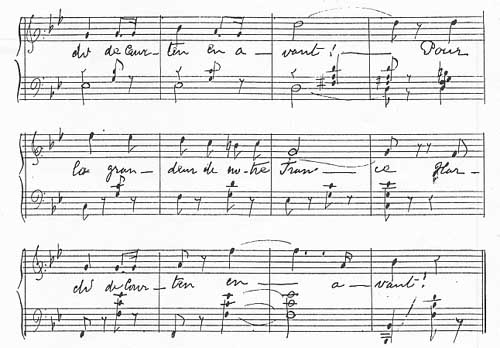 di de Cour – ten en a – vant! Pour
la gran – deur de no – tre Fran – ce Har –
di de Cour – ten en – a – vant!